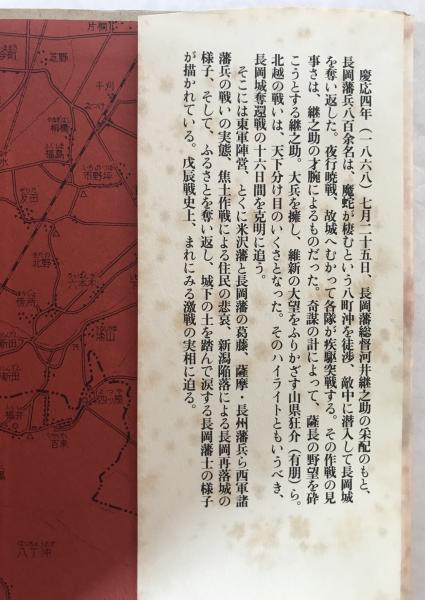 慶応四年（一八六八）七月二十五日、長岡藩総督河井継之助の采配のもと、
長岡藩兵八百余名は、魔蛇が棲むという八町沖を徒渉、敵中に潜入して長岡城
を奪い返した。夜行暁戦、故城へむかって各隊が疾駆突戦する。その作戦の見
事さは、継之助の才腕によるものだった。奇謀の計によって、薩長の野望を砕
こうとする継之助。大兵を擁し、維新の大望をふりかざす山県狂介（有朋）ら。
北越の戦いは、天下分け目のいくさとなった。そのハイライトともいうべき、
長岡城奪還戦の十六日間を克明に追う。
そこには東軍陣営、とくに米沢藩と長岡藩の葛藤、薩摩・長州藩兵ら西軍諸
藩兵の戦いの実態、焦土作戦による住民の悲哀、新潟陥落による長岡再落城の
様子、そして、ふるさとを奪い返し、城下の土を踏んで涙する長岡藩士の様子
が描かれている。戊辰戦史上、まれにみる激戦の実相に迫る。
片桐
芝野
千刈
みつけ
柳橋
福島
市野坪
反田
北野
六本木
浦山
四ッ屋
吉東
福井
八丁沖